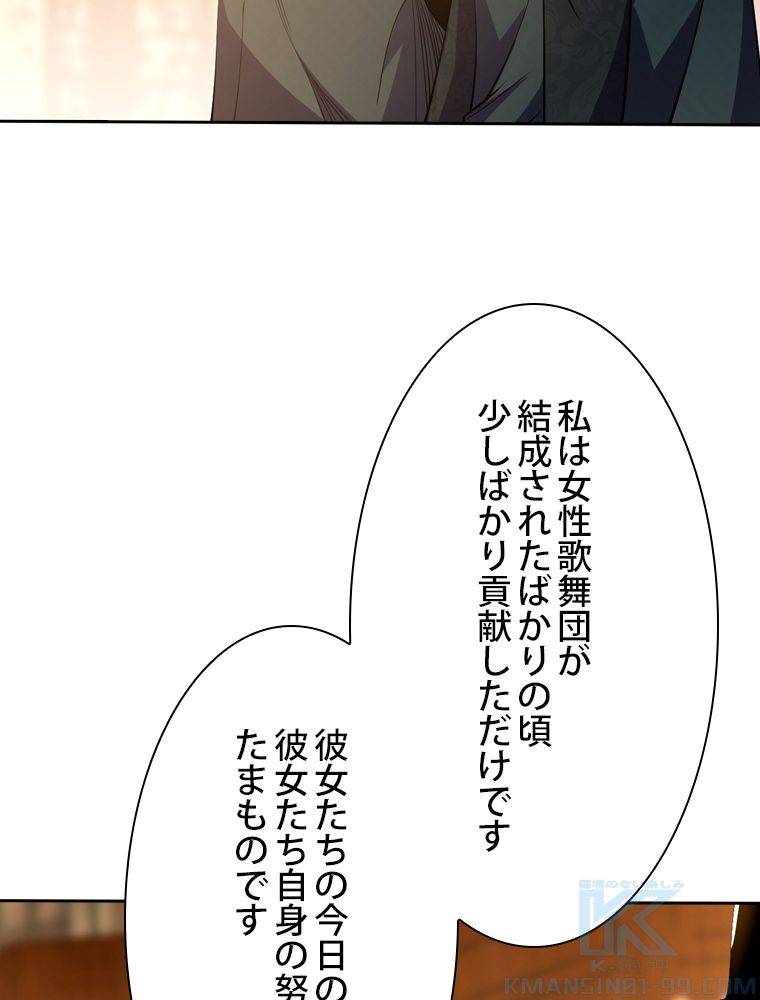 私は女性歌舞団が
結成されたばかりの頃
少しばかり貢献しただけです
彼女たちの今日の
彼女たち自身の努
たまものです
国境のない楽しみ
K
KMANSIN01-99.COM